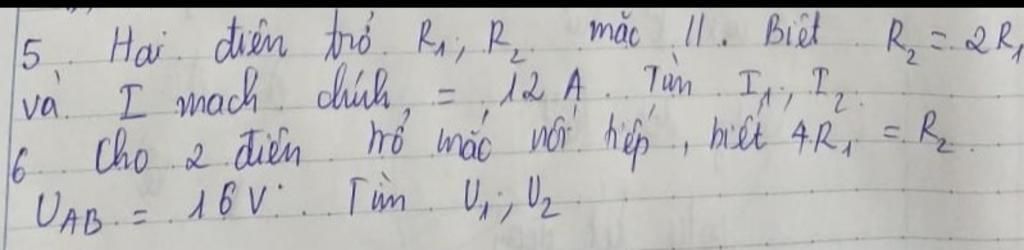 5 Hai điên trỏ R₁; R₂ mắc //. Biết R₂ = 2R₁
và I mach chính = 12 A. Tìm I₁; I₂.
6 Cho 2 điên trỏ mắc nối tiếp, biết 4R₁ = R₂.
U_AB = 16V. Tìm U₁; U₂